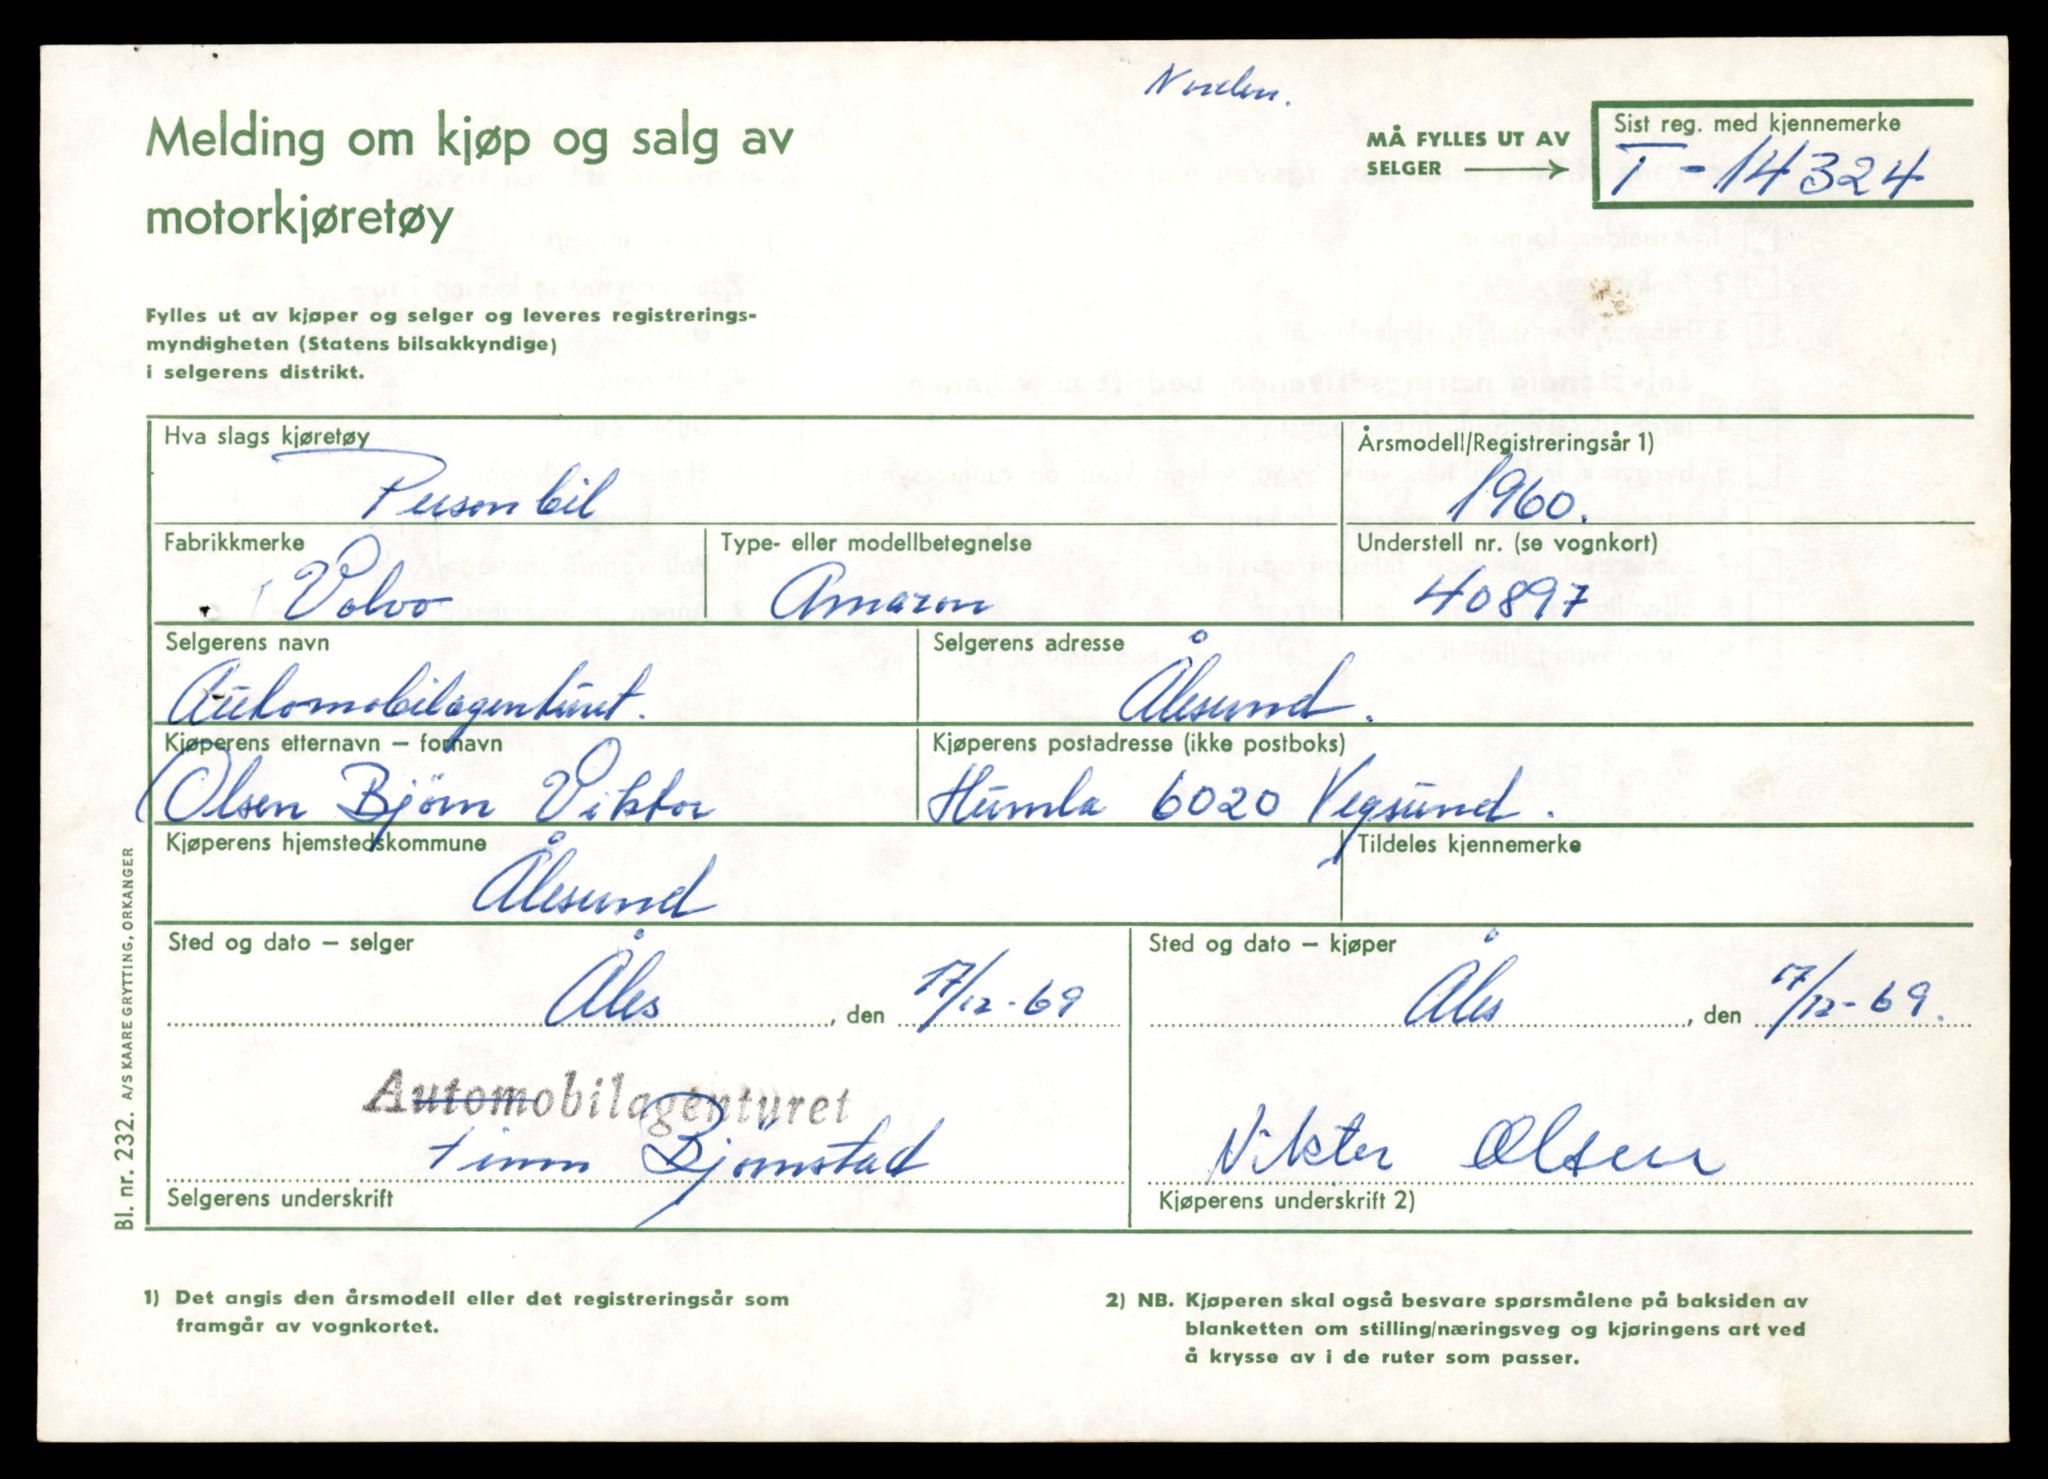 Melding om kjøp og salg av
motorkjøretøy
MÅ FYLLES UT AV
SELGER
Sist reg. med kjennemerke
T-14324
Fylles ut av kjøper og selger og leveres registrerings-
myndigheten (Statens bilsakkyndige)
i selgerens distrikt.
Hva slags kjøretøy
Personbil
Årsmodell/Registreringsår 1)
1960.
Fabrikkmerke
Volvo
Type- eller modellbetegnelse
Amazon
Understell nr. (se vognkort)
40897
Selgerens navn
Automobilagenturet.
Selgerens adresse
Ålesund.
Kjøperens etternavn – fornavn
Olsen Bjørn Viktor
Kjøperens postadresse (ikke postboks)
Humla 6020 Vegsund.
Kjøperens hjemstedskommune
Ålesund
Tildeles kjennemerke
Sted og dato – selger
Åles, den 17/12-69
Sted og dato – kjøper
Åles, den 17/12-69.
Automobilagenturet
Finn Bjørnstad
Selgerens underskrift
Viktor Olsen
Kjøperens underskrift 2)
Bl. nr. 232. A/S KAARE GRYTTING, ORKANGER
1) Det angis den årsmodell eller det registreringsår som
framgår av vognkortet.
2) NB. Kjøperen skal også besvare spørsmålene på baksiden av
blanketten om stilling/næringsveg og kjøringens art ved
å krysse av i de ruter som passer.